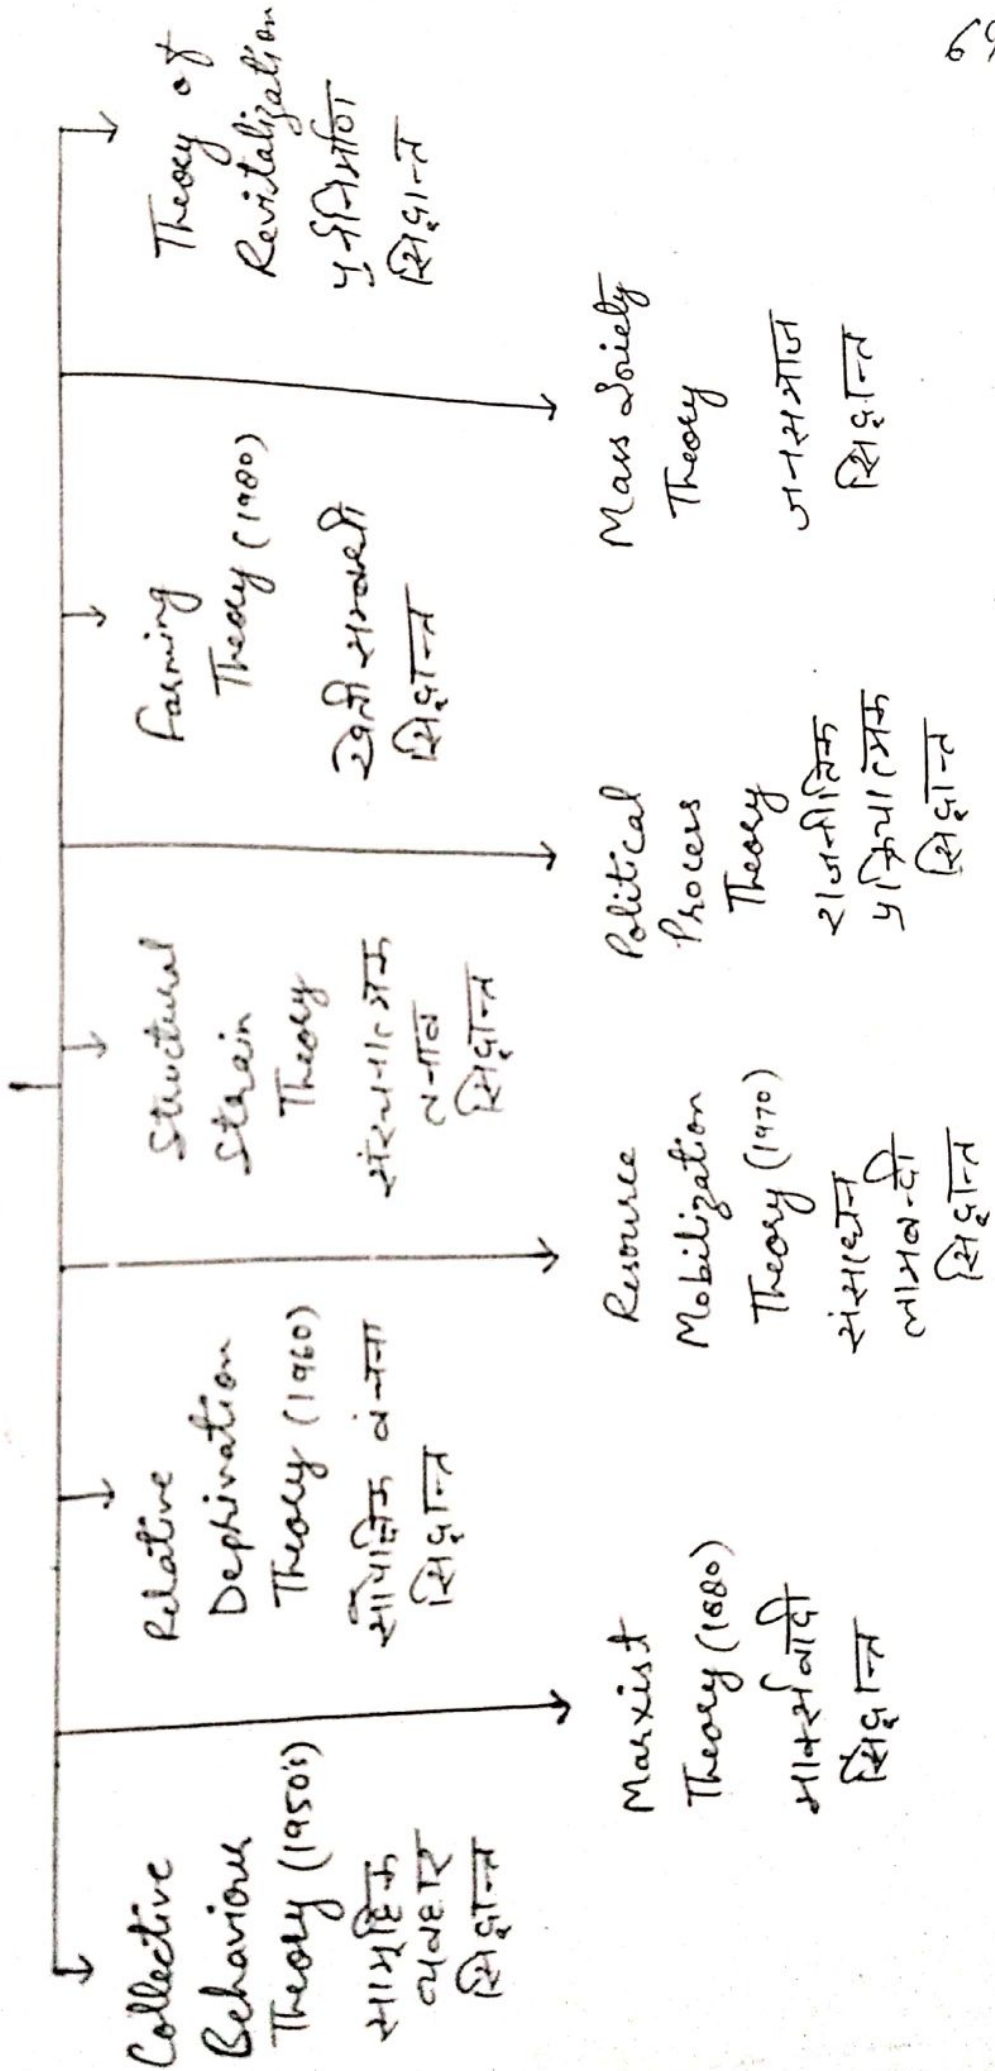 69
Collective
Behaviour
Theory (1950's)
सामूहिक
व्यवहार
सिद्वान्त
Relative
Deprivation
Theory (1960)
सापेक्षिक वंचना
सिद्वान्त
Structural
Strain
Theory
संरचनात्मक
तनाव
सिद्वान्त
Farming
Theory (1980)
खेती सम्बन्धी
सिद्वान्त
Theory of
Revitalization
पुर्ननिर्माण
सिद्वान्त
Marxist
Theory (1880)
मार्क्सवादी
सिद्वान्त
Resource
Mobilization
Theory (1970)
संसाधन
लामबन्दी
सिद्वान्त
Political
Process
Theory
राजनीतिक
प्रक्रियात्मक
सिद्वान्त
Mass Society
Theory
जनसमाज
सिद्वान्त